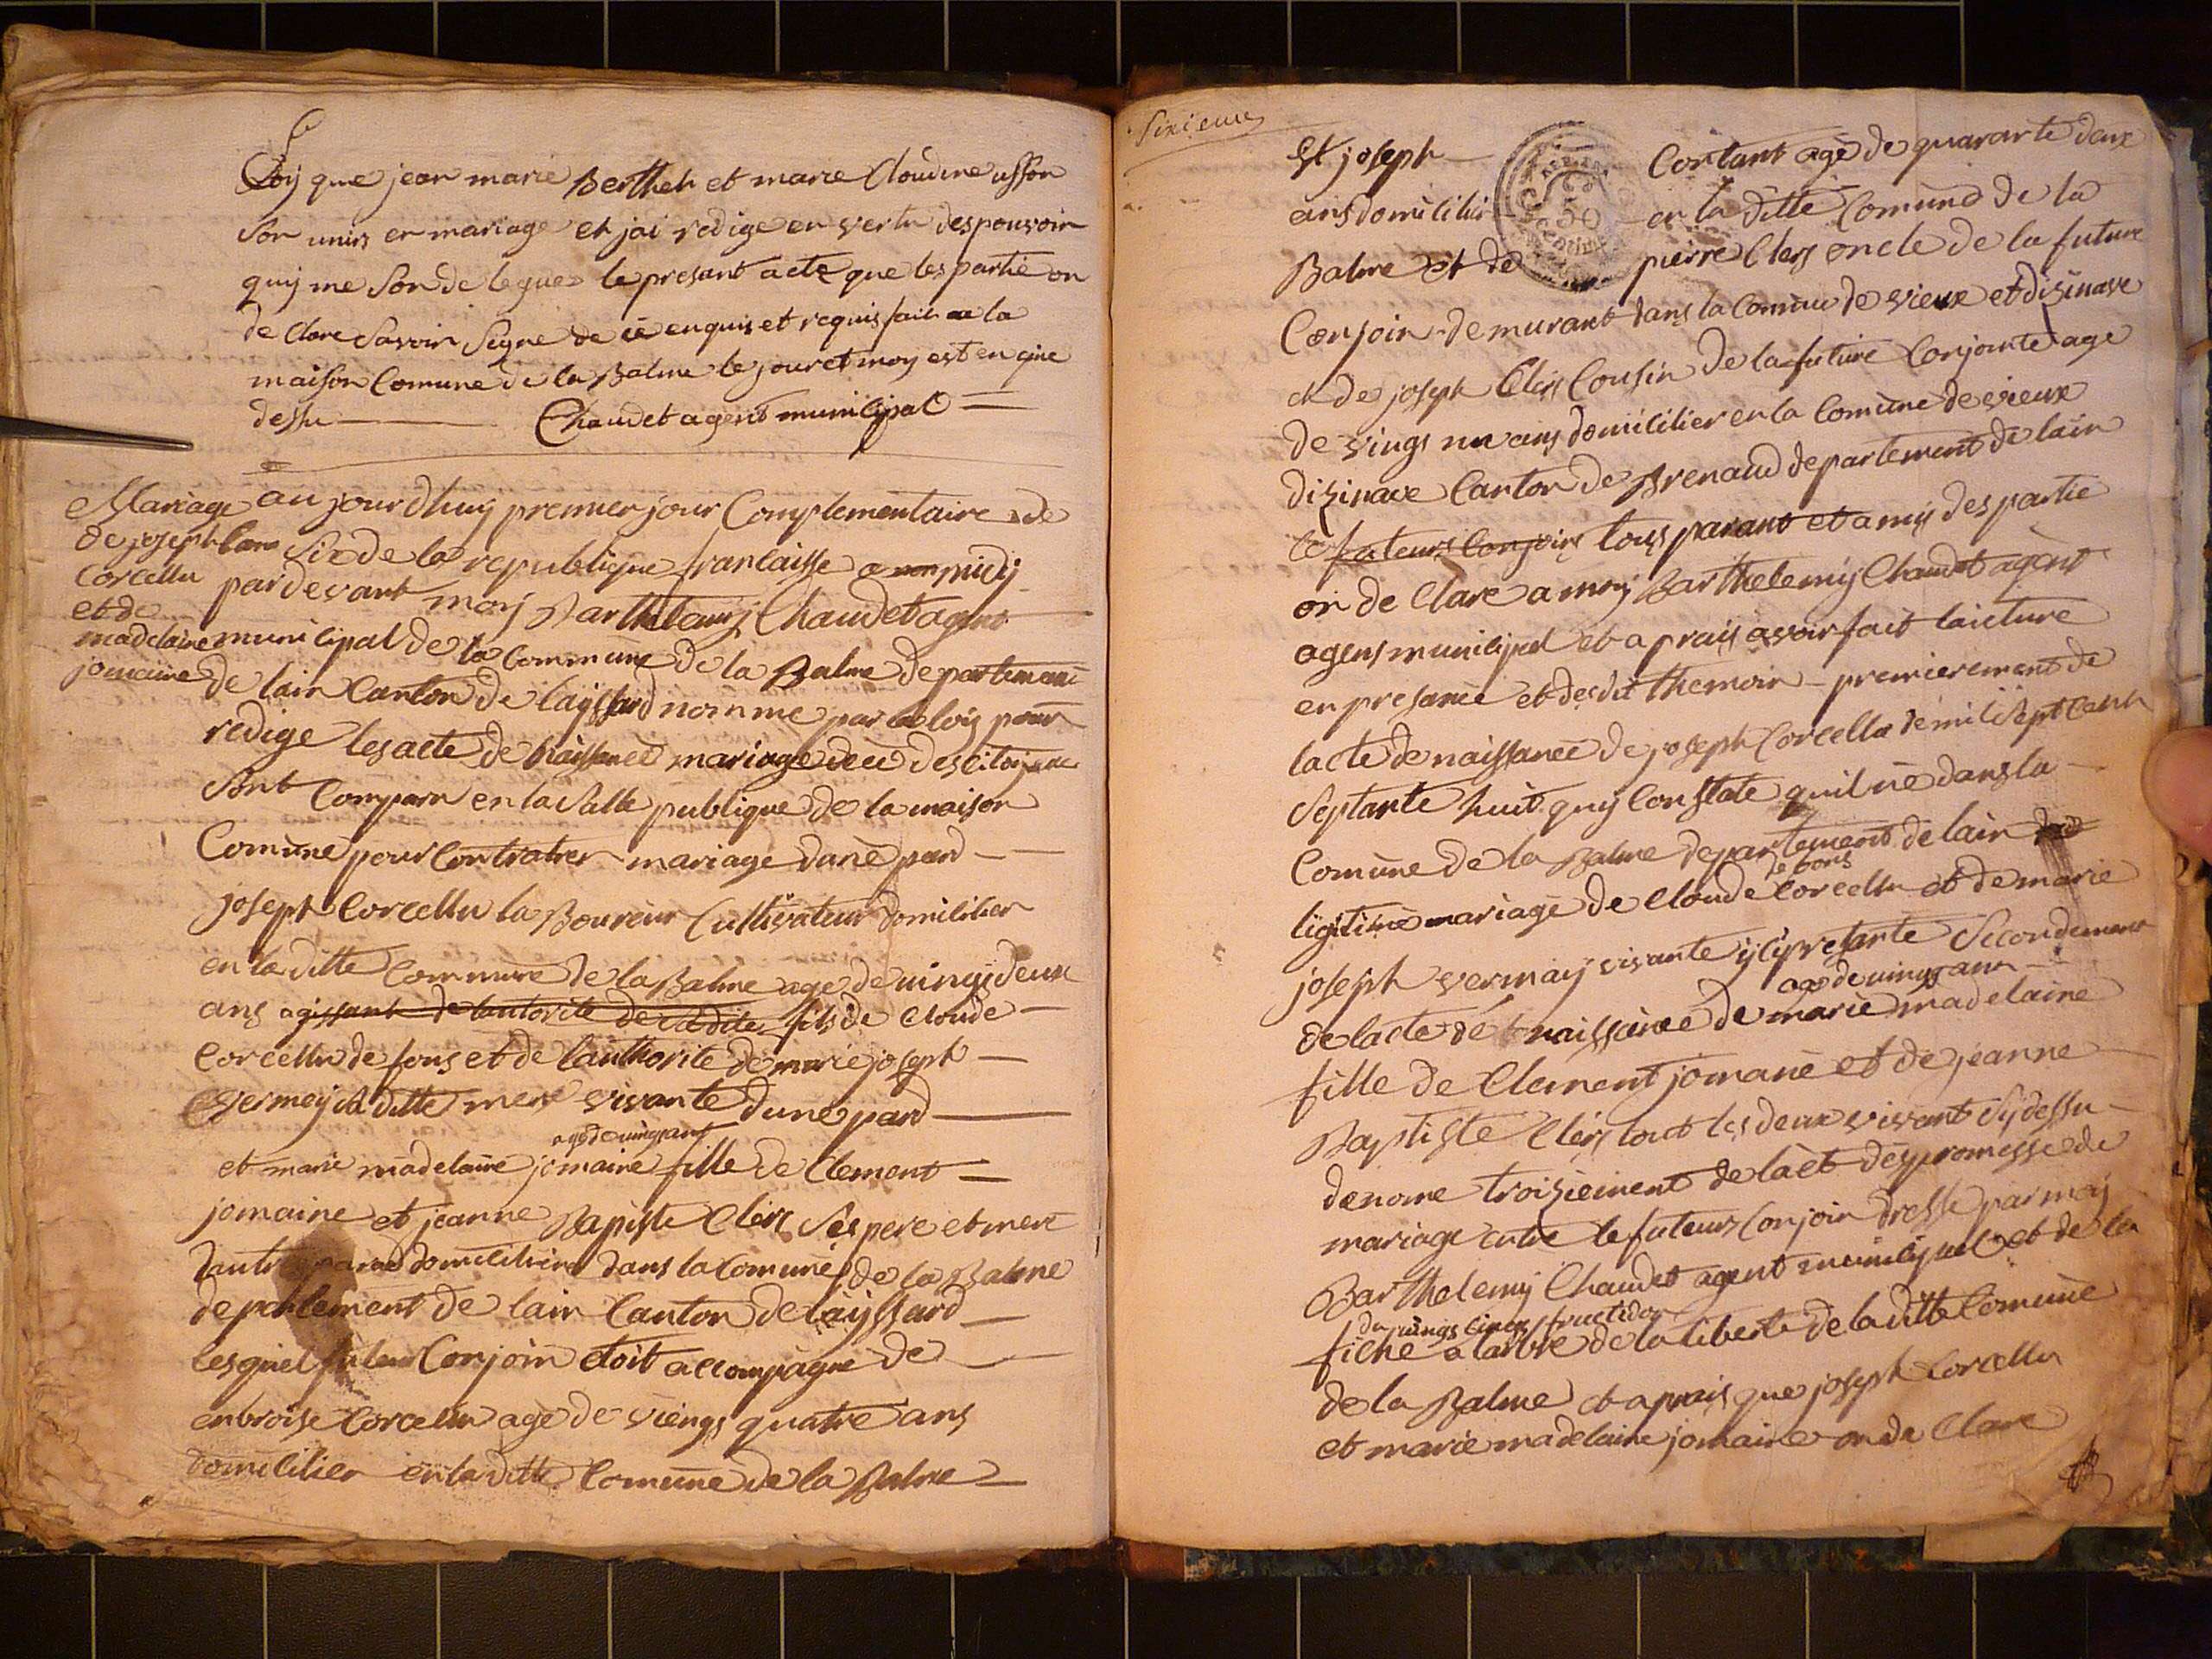 Loy que jean marie Berthet et marie Cloudine usson
son unirs en mariage et jai redige en vertu des pouvoir
quy me son de legues le presant acte que les partie on
de Clare savoir signe de ce enquis et requis fait a la
maison Comune de la Balme le jour et moy est en gine
dessu Chaudet agent municipal
Mariage
de joseph
Corcellu
et de
madelaine
jomaine
au jourdhuy premier jour Complementaire de
lans six de la republique franlaisse a midij
par devant moij Barthelemij Chaudet agent
municipal de la Commune de la Balme departemant
de lain Canton de laijssard nomme par la loij pour
redige les acte de naissance mariage decè des citoijens
sont Comparu en la salle publique de la maison
Comùne pour Contratrer mariage dunè pard
joseph Corcellu la Boureur Cultivateur domicilier
en la ditte Commune de la Balme age de vingt deux
ans agissant de lautorite de sadite fils de Cloude
Corcellu de fons et de lauthorite de marie joseph
Vermeij sa ditte mere vivante dune pard
age de vings ans
et marie madelaine jomaine fille de Clement
jomaine et jeanne Bapiste Clerc ses pere et mere
dautre domicilier dans la Comune de la Balme
departement de lain Canton de laijssard
lesquel futeur Conjoin etoit accompagne de
enbroise Corcellu agè de viengs quatre ans
domicilier en la ditte Comune de la Balme
sixieme
et joseph Contant agè de quarante deux
ans domicilier en la ditte Comune de la
Balme et de pierre Clers oncle de la future
Conjoin demurant dans la Comùne de vieux et dizinave
et de joseph Clers Cousin de la future Conjointe age
de vings un ans domicilier en la Comùne de vieux
dizinave Canton de Brenaud departement de lain
le futeurs Conjoins tous parant et amis des partie
on de Clare a moy Barthelemij Chaudet agent
agens municipal et a prais avoir fait laicture
en presance et desdit themoin premierement de
lacte de naissance de joseph Corcellu de mil sept cent
septante huit quij Constate quil nè dans la
Comùne de la Balme departement de lain
de fons
ligitime mariage de Cloude Corcellu et de marie
joseph vermaij vivante ijcij presante secondement
age de vings ans
de lacte de naissance de marie madelaine
fille de Clement jomane et de jeanne
Baptiste Clers tout les deux vivant sij dessu
denome troisiement de lact des promesse de
mariage entre le futeurs Conjoin dresse par moij
Barthelemij Chaudet agent municipal et de la
du vings cinq fructidor
fiche a larbre de la liberte de la ditte Comune
de la Balme et aprais que joseph Corcellu
et marie madelaine jomaine on de Clare